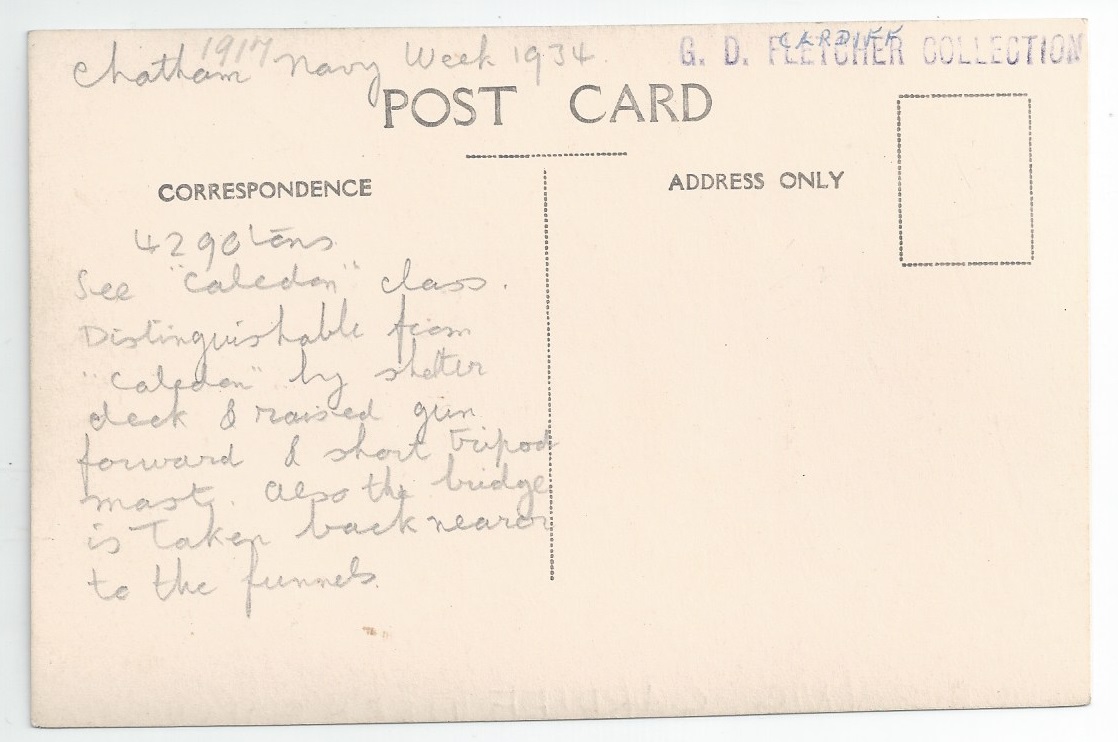 1917
Chatham Navy Week 1934.
CARDIFF
G. D. FLETCHER COLLECTION
POST CARD
CORRESPONDENCE
ADDRESS ONLY
4290 tons
See "Caledon" class.
Distinguishable from
"Caledon" by shelter
deck & raised gun
forward & short tripod
mast. Also the bridge
is taken back nearer
to the funnels.